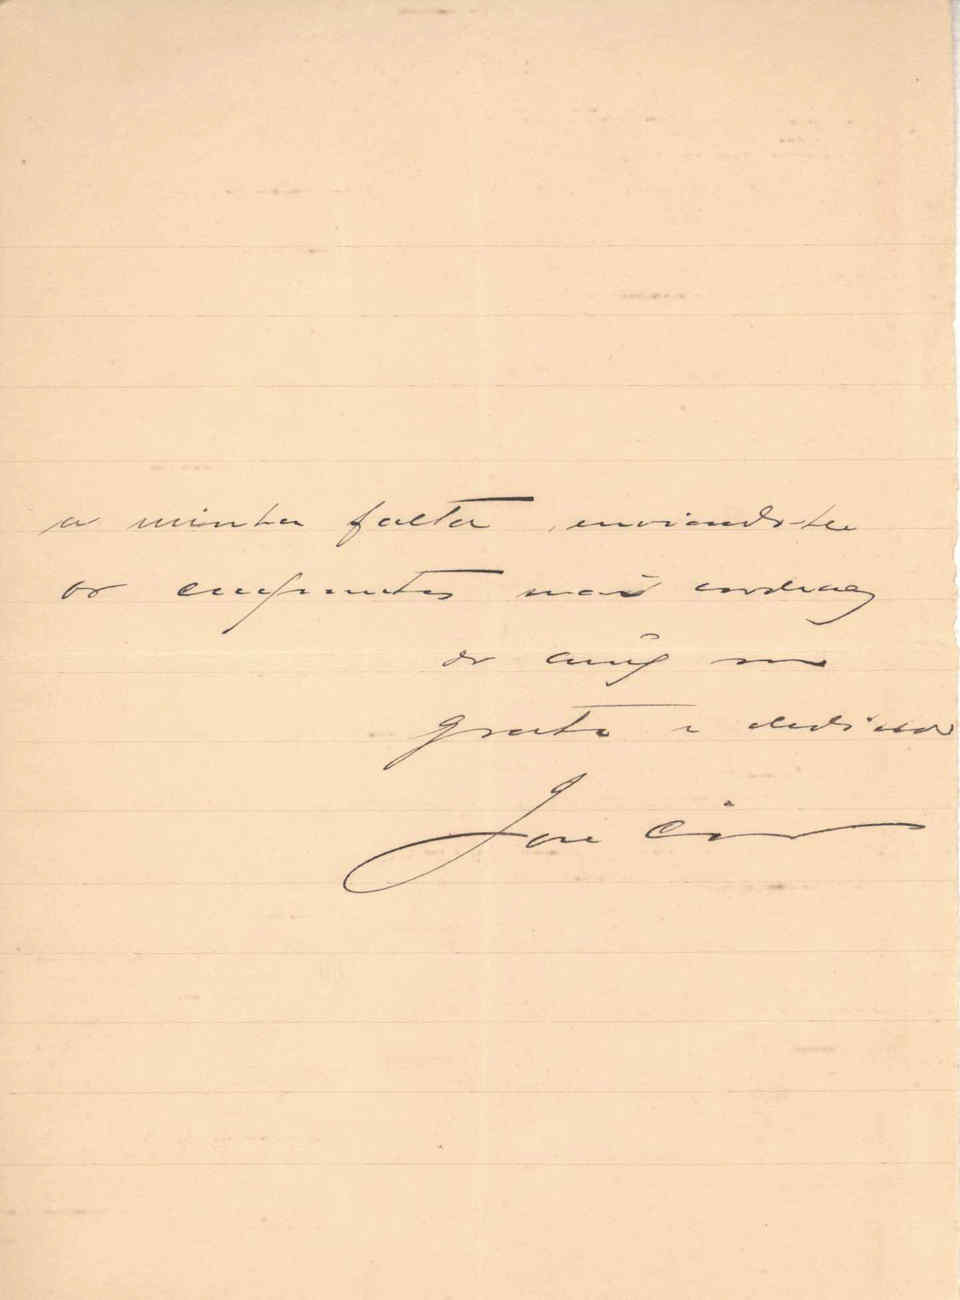 a minha falta, enviando-lhe
os cumprimentos mais cordiaes
do amigo m
grato e dedicado
José